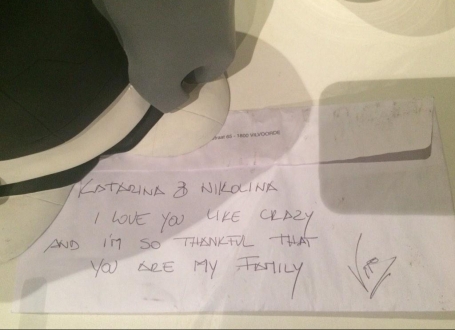 1800 VILVOORDE
KATARINA & NIKOLINA
I LOVE YOU LIKE CRAZY
AND I'M SO THANKFUL THAT
YOU ARE MY FAMILY